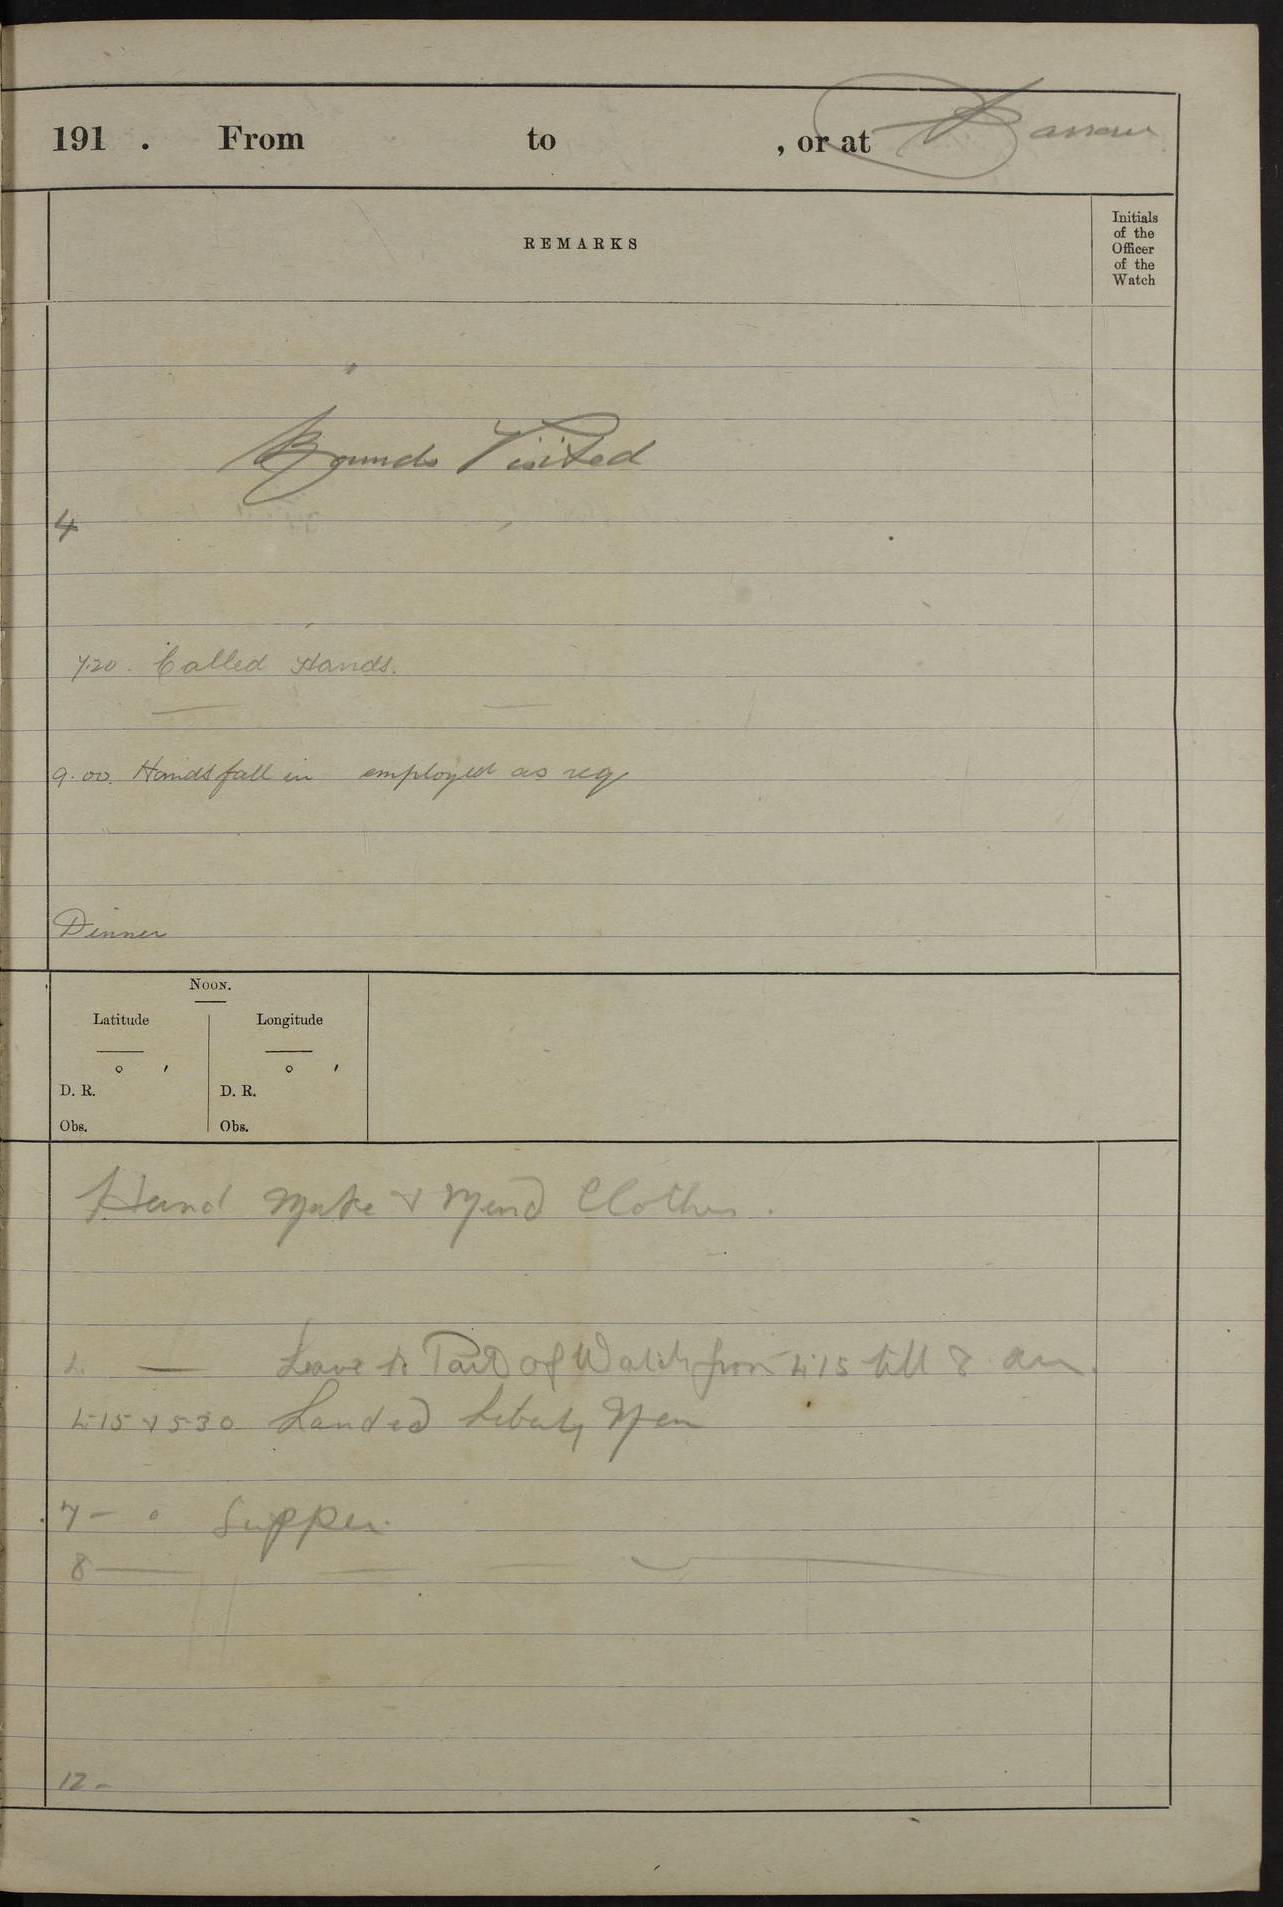 191 . From to , or at Barrow
REMARKS
Initials
of the
Officer
of the
Watch
Rounds Visited
4
7.20. Called Hands.
9.00. Hands fall in employed as req
Dinner
NOON.
Latitude Longitude
° ′ ° ′
D. R. D. R.
Obs. Obs.
Hand Make & Mend Clothes.
4. — Leave to Part of Watch from 4.15 till 8 am.
4-15 & 5-30 Landed Liberty Men
7 - 0 Supper.
8
12 -